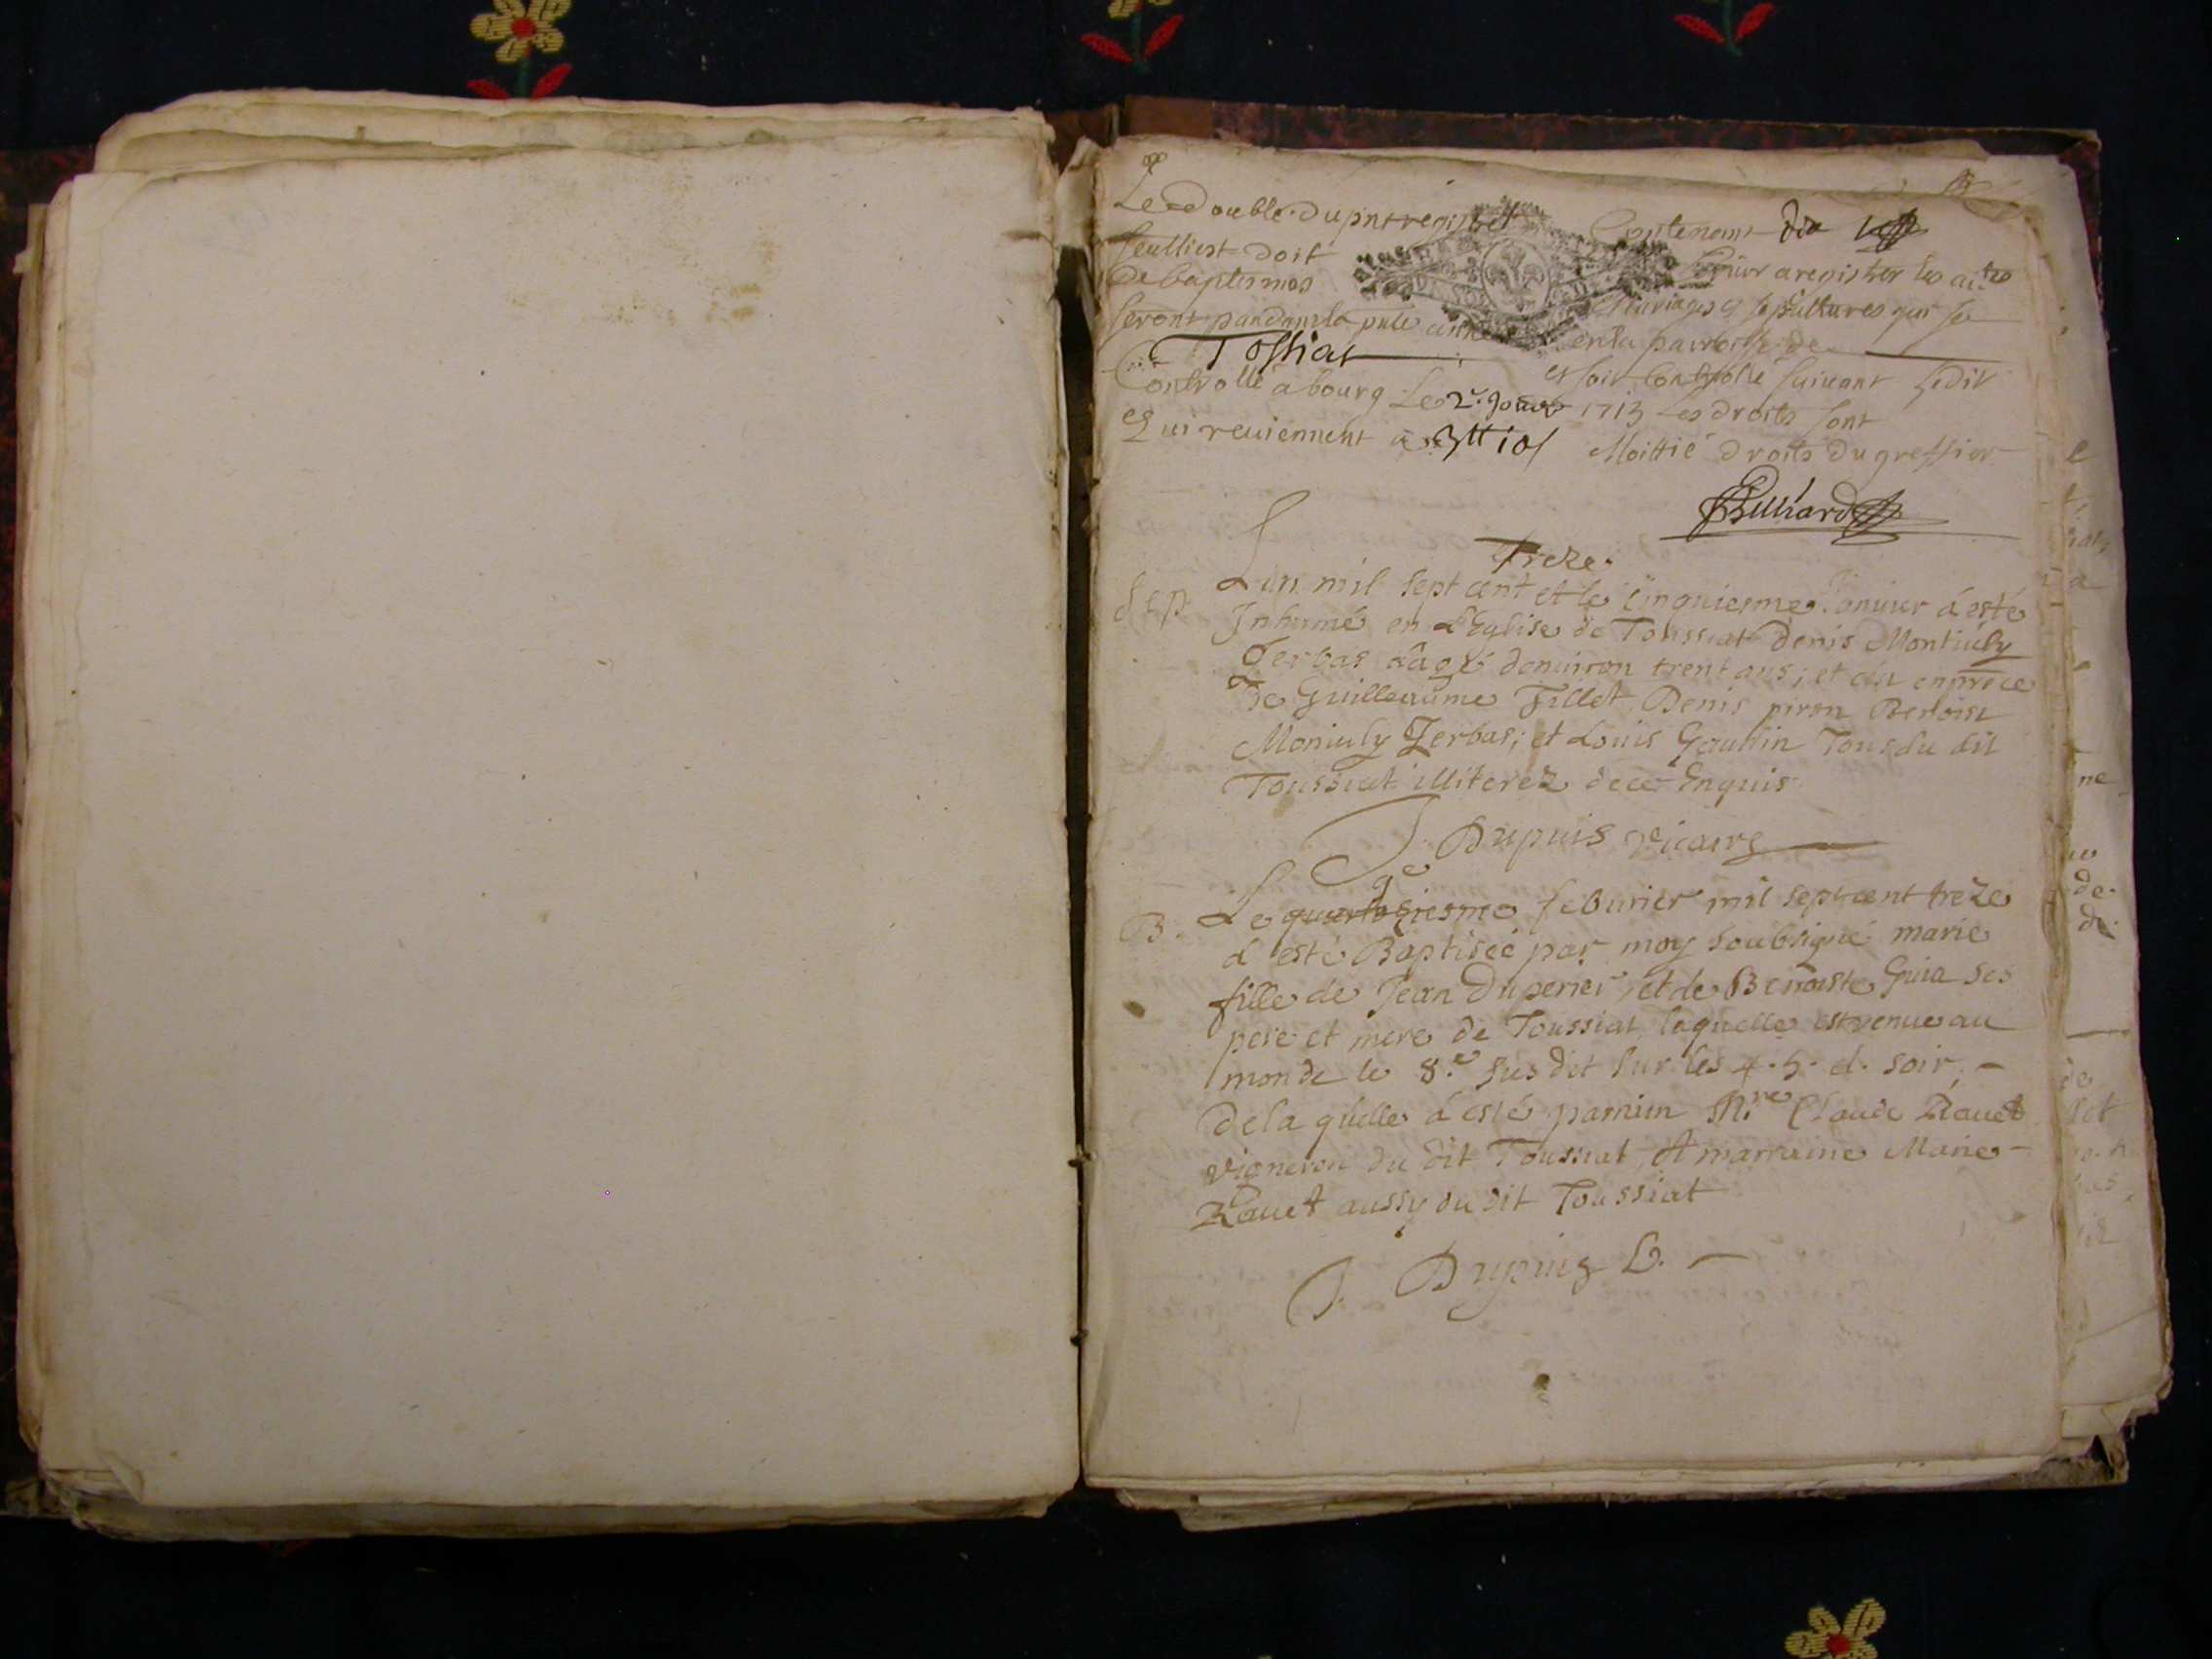 Le double du pnt registre Contenant dix
feulliest doit servir a registrer les actes
de baptesmes Mariages et sepultures qui se
feront pandant la pnte année en la parroisse de
Tossiat et soit Controllé suivant ledit
Controllé a bourg Le 2e Janvr 1713 Les droits sont
qui reviennent a 3tt 10s Moittié droits du greffier
treze.
Sep. L'an mil sept cent et le cinquiesme Janvier á esté
Inhumé en L'Eglise de Toussiat denis Montiuly
Ferbas aâgé denuiron trent ans; et du enprece
de Guilleaume Fillet, Denis piron Benoist
Moniuly Ferbas; et Louis Gauthin Tous du dit
Toussiat illiterez de ce Enquis
J. Dupuis vicaire
9e
B. Le febvrier mil sept cent treze
á esté Baptiseé par moy soubsigné marie
fille de Jean Duperier, et de Benoiste Guia ses
pere et mere de Toussiat, laquelle est venue au
monde le 8.e susdit sur les 4. h. d. soir, -
de la quelle á esté parrain Claude Rauet
vigneron du dit Toussiat, et marraine Marie -
Rauet aussy du dit Toussiat
J. Dupuis V. -